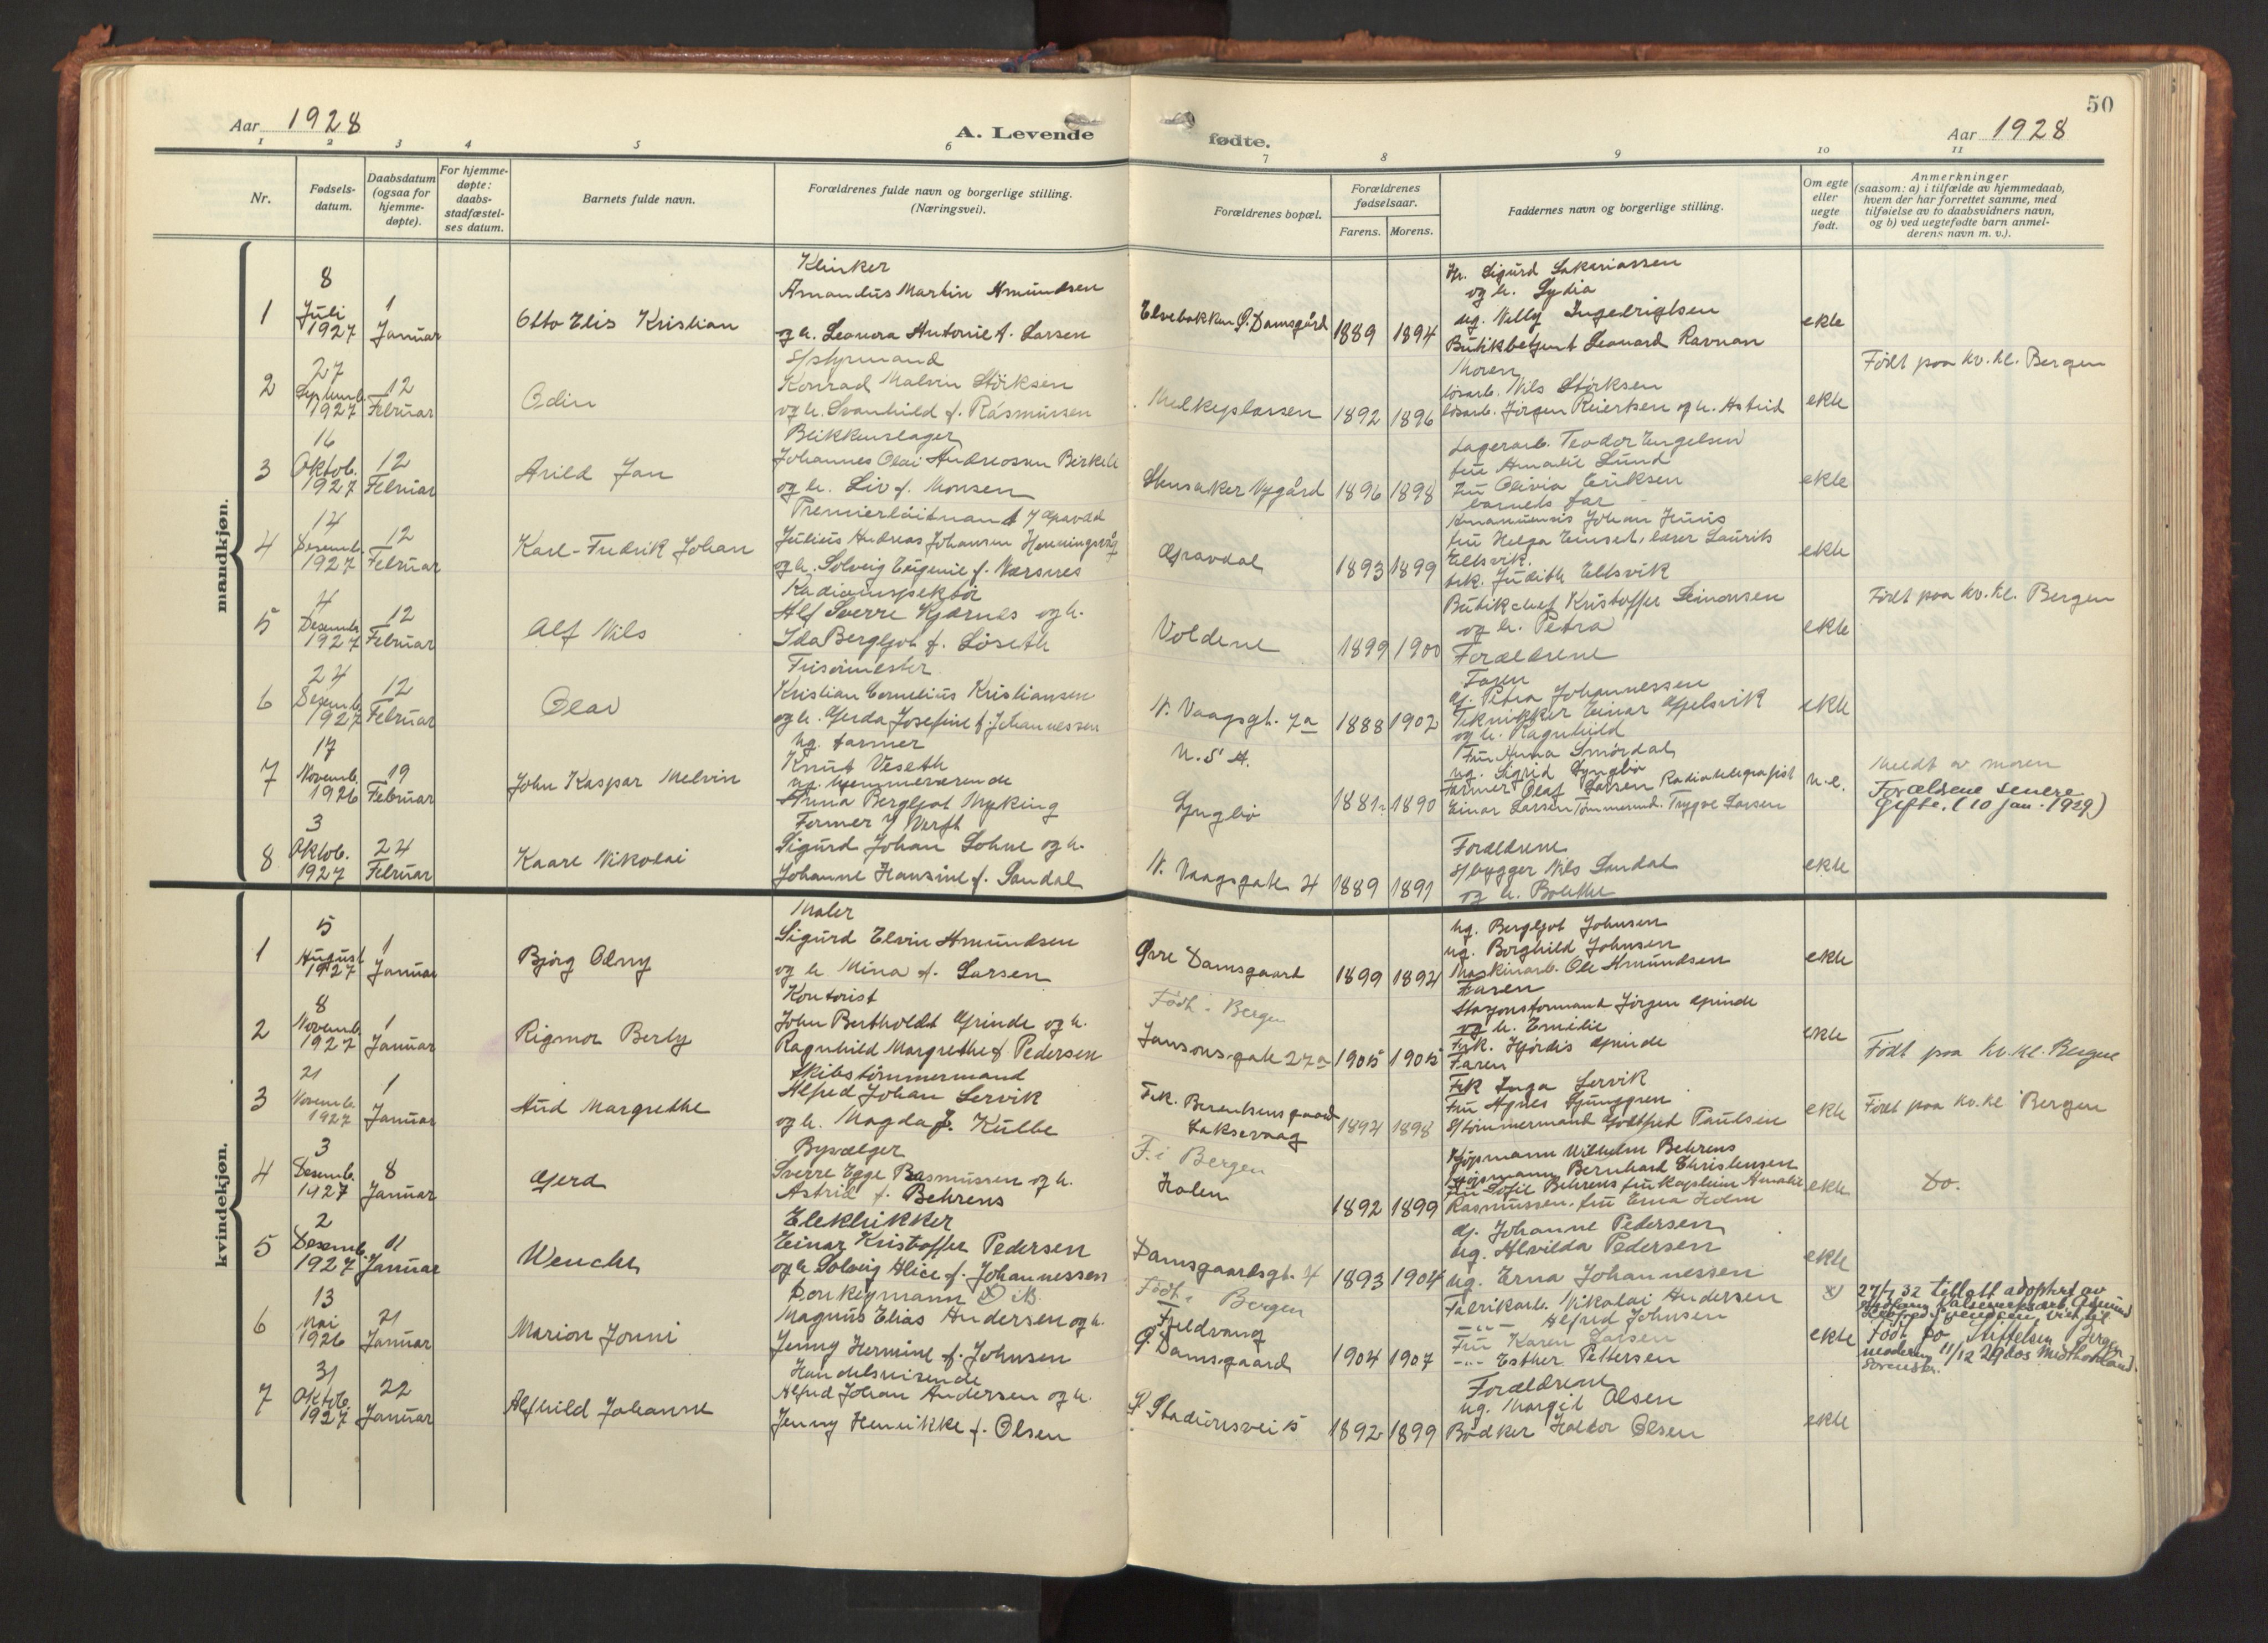 50
Aar 1928
A. Levende
fødte.
Aar 1928
1 2 3 4 5 6 7 8 9 10 11
Nr.
Fødsels-
datum.
Daabsdatum
(ogsaa for
hjemme-
døpte).
For hjemme-
døpte:
daabs-
stadfæstel-
ses datum.
Barnets fulde navn.
Forældrenes fulde navn og borgerlige stilling.
(Næringsvei).
Forældrenes bopæl.
Forældrenes
fødselsaar.
Farens. Morens.
Faddernes navn og borgerlige stilling.
Om egte
eller
uegte
født.
Anmerkninger
(saasom: a) i tilfælde av hjemmedaab,
hvem der har forrettet samme, med
tilføielse av to daabsvidners navn,
og b) ved uegtefødte barn anmel-
derens navn m. v.).
mandkjøn.
1
8
Juli
1927
1
Januar
Otto Elis Kristian
Klinker
Amandus Martin Amundsen
og h. Leonora Antonie f. Larsen
Elvebakken Ø. Damsgård
1889 1894
Hr. Sigurd Sakariassen
og h. Lydia
ug. Nelly Ingebrigtsen
Butikbetjent Leonard Ravnan
ekte
2
27
Septemb.
1927
12
Februar
Odin
S/styrmand
Konrad Malvin Störksen
og h. Svanhild f. Rasmussen
Melkeplassen
1892 1896
Moren
lösarb. Nils Störksen
lösarb. Jörgen Reiertsen og h. Astrid
ekte
Födt paa kv. kl. Bergen
3
16
Oktob.
1927
12
Februar
Arild Jan
Blikkenslager
Johannes Olai Andreassen Birkeli
og h. Liv f. Monsen
Stensaker Nygård
1896 1898
Lagerarb. Teodor Engelsen
fru Amalie Lund
Fru Olivia Eriksen
barnets far
ekte
4
14
Desemb.
1927
12
Februar
Karl-Fredrik Johan
Premierlöitnant
Julius Andreas Johansen Henningsvåg
og h. Solveig Eugenie f. Værsnes
Gravdal
1893 1899
Amanuensis Johan
fru Helga Einset, lærer Laurits
Eltsvik.
frk. Judith Eltsvik
ekte
5
4
Desemb.
1927
12
Februar
Alf Nils
Radioinspektör
Alf Sverre Kjærnes og h.
Ida Bergljot f. Löseth
Voldene
1899 1900
Butikchef Kristoffer Simonsen
og h. Petra
Forældrene
ekte
Födt paa kv. kl. Bergen
6
24
Desemb.
1927
12
Februar
Olav
Frisörmester
Kristian Cornelius Kristiansen
og h. Gerda Josefine f. Johannessen
N. Vaagsgt. 7a
1888 1902
Faren
gj. Petra Johannessen
Tekniker Einar Gjelsvik
og h. Ragnhild
ekte
7
17
Novemb.
1926
19
Februar
John Kaspar Melvin
Ug. farmer
Knut Veseth
ug. hjemmeværende
Anna Bergljot Myking
U.S.A.
Lyngbö
1881 1890
Fru Anna Smördal
ug. Sigrid Lyngbö
farmer Olaf Larsen Radiotelegrafist
Einar Larsen Tömmermd. Trygve Larsen
u.e.
Meldt av moren
Forældrene senere
gifte. (10 jan. 1929)
8
3
Oktob.
1927
24
Februar
Kaare Nikolai
Former
Sigurd Johan Lohne og h.
Johanne Hansine f. Sandal
N. Vaagsgate 4
1889 1891
Forældrene
S/bygger Nils Sandal
og h. Bolette
ekte
kvindekjøn.
1
5
August
1927
1
Januar
Bjørg Odny
Maler
Sigurd Elvin Amundsen
og h. Mina f. Larsen
Øvre Damsgaard
1899 1892
ug. Bergljot Johnsen
ug. Borghild Johnsen
Maskinarb. Ole Amundsen
Faren
ekte
2
8
Novemb.
1927
1
Januar
Rigmor Berly
Kontorist
John Bertholdt Grinde og h.
Ragnhild Margrethe f. Pedersen
Födt i Bergen
Jansonsgate 27a
1905 1905
Stasjonsformand Jörgen Grinde
og h. Emilie
Frk. Hjördis Grinde
Faren
ekte
Födt paa kv. kl. Bergen
3
21
Novemb.
1927
1
Januar
Aud Margrethe
Skibstömmermand
Alfred Johan Lervik
og h. Magda f. Kulbe
Frk. Berentsens gaard
Laksevaag
1894 1898
Frk Inga Lervik
Fru Agnes Ljunggren
S/tömmermand Godtfred Paulsen
ekte
Födt paa kv. kl Bergen
4
3
Desemb.
1927
8
Januar
Gerd
Byselger
Sverre Egge Rasmussen og h.
Astrid f. Behrens
F. i Bergen
Holen
1892 1899
Kjöpmann Wilhelm Behrens
Kjöpmann Bernhard Christensen
fru Sofie Behrens fru Amalie
Rasmussen, fru Erna Holm
ekte
Do.
5
2
Desemb.
1927
11
Januar
Wenche
Elektrikker
Einar Kristoffer Pedersen
og h. Solveig Alice f. Johannessen
Damsgaardsgt. 4
1893 1904
gj. Johanne Pedersen
Ug. Alvilda Pedersen
ug. Erna Johannessen
ekte
6
13
Mai
1926
21
Januar
Marion Jonni
Donkeymann
Magnus Elias Andersen og h.
Jenny Hermine f. Johnsen
Födt i Bergen
Fjeldvang
Ø Damsgaard
1904 1907
Fabrikarb. Nikolai Andersen
-"- Alfred Johnsen
Fru Karen Larsen
-"- Esther Pettersen
x)
ekte
27/7 32 tillatt adoptert av
Födt Stiftelsen Bergen
7
31
Oktob.
1927
22
Januar
Alfhild Johanne
Handelsreisende
Alfred Johan Andersen og h.
Jenny Henrikke f. Olsen
Stadionsvei 15
1892 1899
Forældrene
ug. Margit Olsen
Bödker Haldor Olsen
ekte